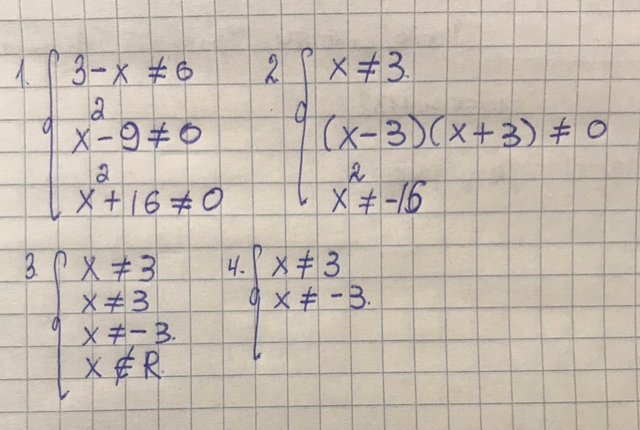 1. { 3-x ≠ 6
x² - 9 ≠ 0
x² + 16 ≠ 0
2 { x ≠ 3.
(x-3)(x+3) ≠ 0
x² ≠ -16
3. { x ≠ 3
x ≠ 3
x ≠ -3.
x ∉ R
4. { x ≠ 3
x ≠ -3.